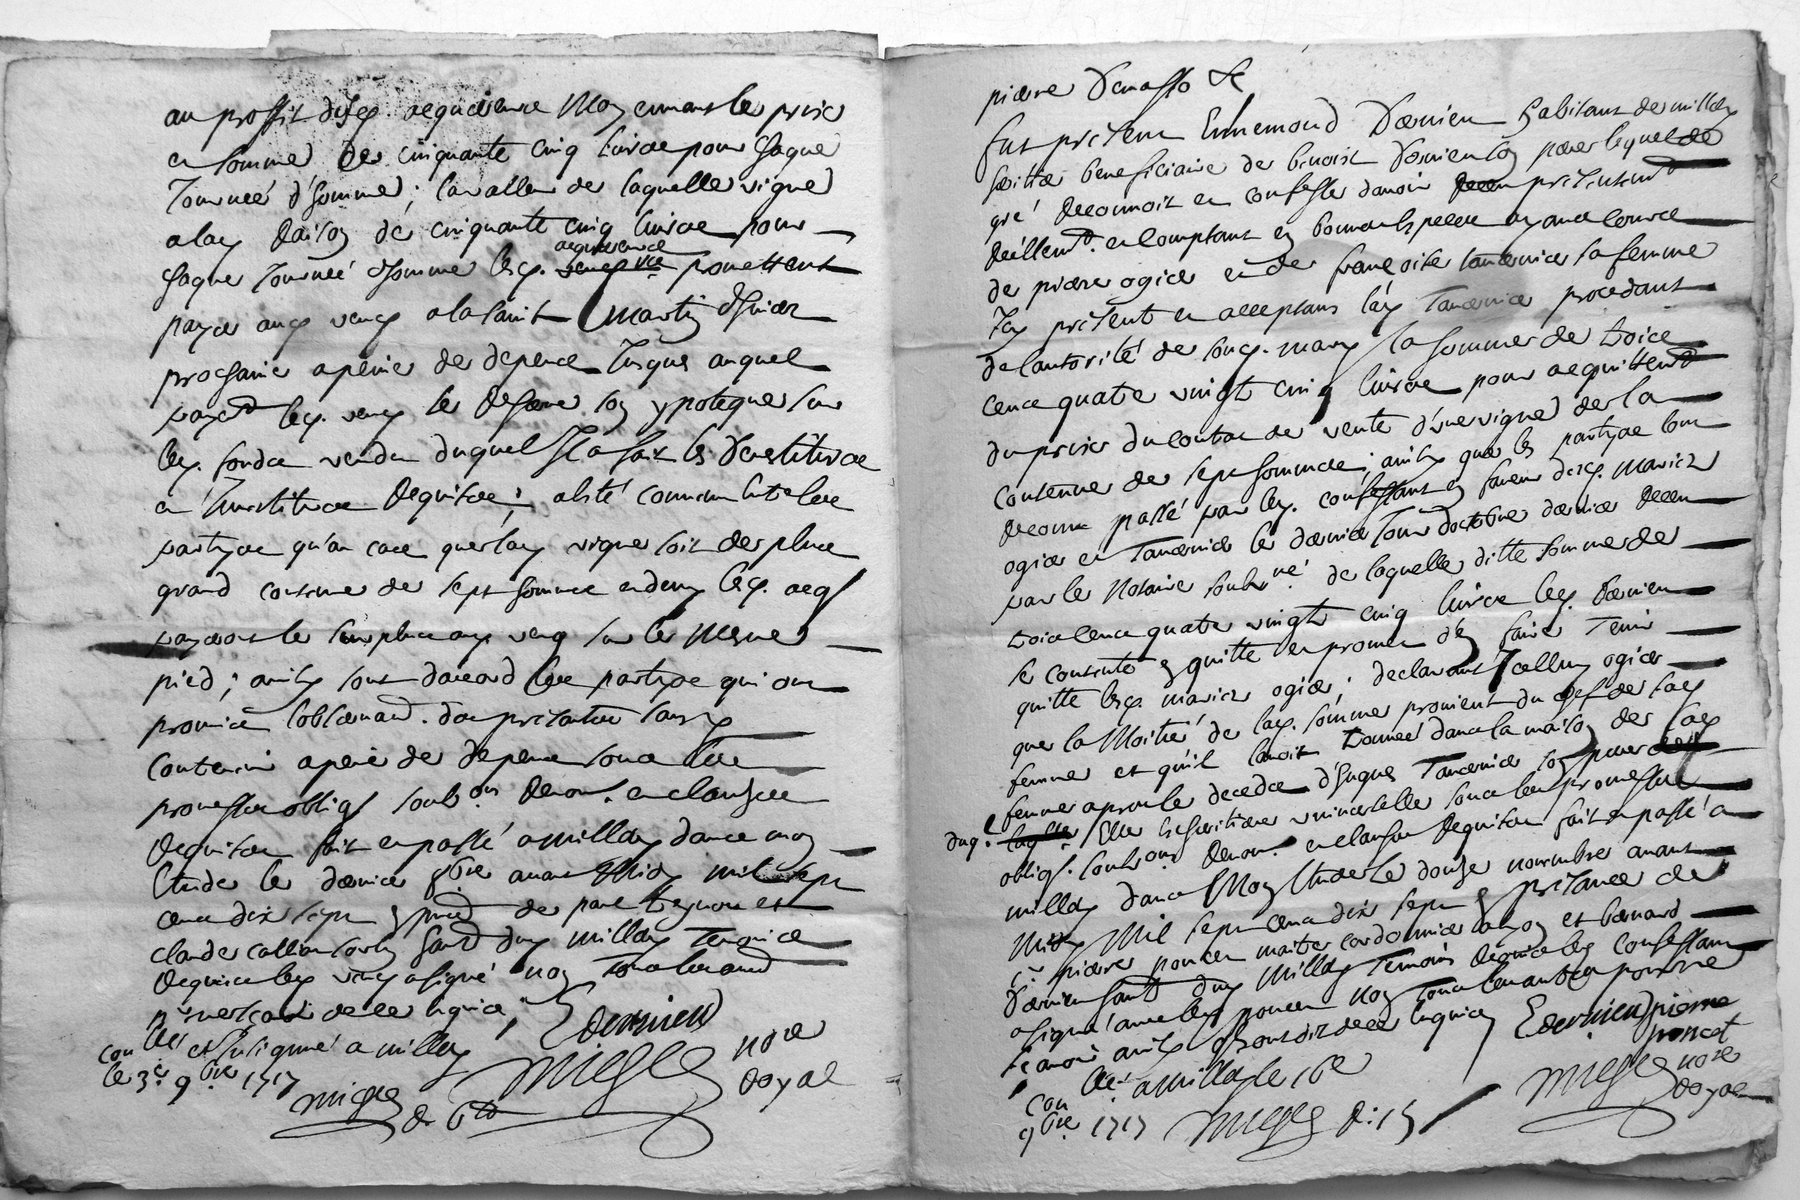 au proffit desd. acquereurs Moy ennant le prix
et somme de cinquante cinq livres pour chaque
journeé d'homme; la valleur de laquelle vigne
a lad. raison de cinquante cinq livres pour
chaque journeé d'homme lesd. acquereurs promettent
payer aud. vend. a la saint martin d'hiver
prochaine a peine de depens jusques auquel
payemt led. vend. se reserve son ypoteque sur
led. fonds vendu duquel il a fait les devestitures
et investitures requises; a esté convenu entre les
partyes qu'au cas que lad. vigne soit de plus
grand contenue de sept hommes et demy lesd. acq
payeront le surplus aud. vend. sur le mesme
pied; ainsy sont daccord les partyes qui ont
promis l'observaon. du present
contenu a peine de depens sous leurs
promesses oblig soub.ons renon. et clauses
requises fait et passé a millery dans mon
Etude le dernier 8bre avant midy mil sept
cent dix sept en pnce de
claude habt dud. millery temoins
requis led. vend. a signé non
pour ne scavoir de ce requis
collé et insignué a millery
con
le 3e 9bre 1717
E dervieu
miege nore
royal
miege
pierre
fut present Ennemond Dervieu habitant de millery
heritier beneficiaire de benoist Dervieu son pere lequel de
gré reconnoit et confesse d'avoir receu presentemt
reellemt. et comptant en bonnes especes ayans cours
de pierre ogier et de françoise tavernier sa femme
icy present et acceptans lad. Tavernier procedant
de l'autorité de sond. mary la somme de trois
cents quatre vingt cinq livres pour acquittemt
du prix du contrat de vente d'une vigne de la
contenue de sept hommes; ainsy que les partyes l'ont
reconnu passé par led. confessant en faveur desd. mariez
ogier et Tavernier le dernier jour d'octobre dernier receu
par le Notaire soubsné de laquelle ditte somme de
trois cents quatre vingt cinq livres led. Dervieu
se contente en quitte et promet d'en faire tenir
quitte lesd. mariez ogier; declarant icelluy ogier
que la Moitié de lad. somme provient du chef de sad.
femme et qu'il l'avoit trouvée dans la maison de lad.
femme apres le decedz d'hugues Tavernier son pere
duq. Elle est heritiere universelle sous les promesses
oblig. soub.ons renon. et clauses requises fait et passé a
millery dans Mon Etude le douze novembre avant
Midy Mil sept cent dix sept en presence de
sr pierre poncet maitre cordonnier a lyon et bernard
Dervieu habt dud. millery temoins requis led. confessant
a signé avec led. poncet non pour ne
scavoir ainsy qu'ont dit de ce requis
E dervieu pierre
poncet
collé a millery le 16e
con
9bre 1717 miege
miege nore
royal